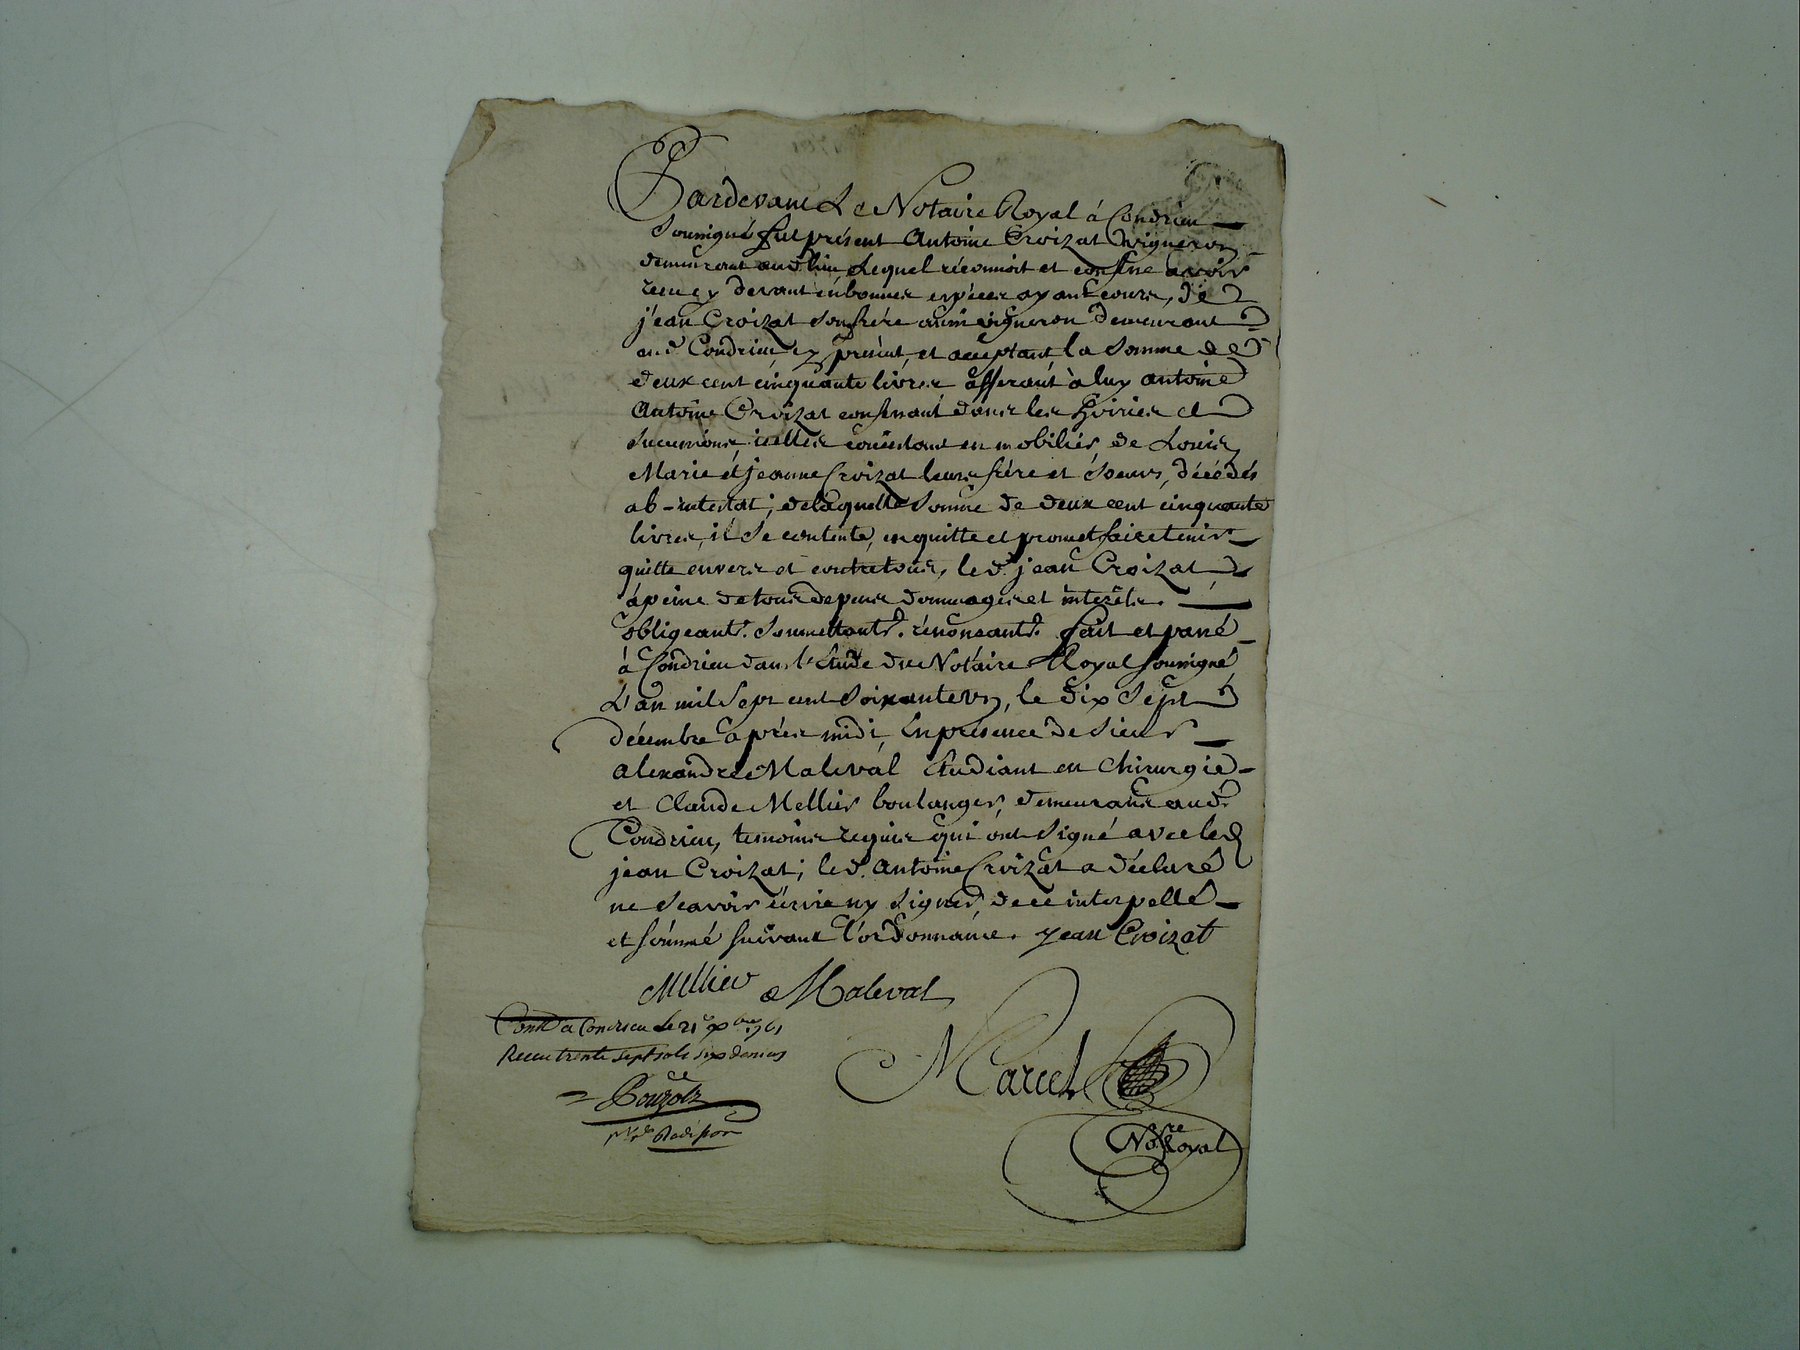 Pardevant Le Notaire Royal à Condrieu
Soussigné fut présent Antoine Croizat vigneron
demeurant aud. lieu, Lequel réconnoit et confesse avoir
receu cy devant en bonnes espéces ayant cours, de
jean Croizat son frére aussi vigneron demeurant
aud. Condrieu, cy présent, et acceptant, la somme de
deux cent cinquante livres afferant à luy antoine
Antoine Croizat confessant dans les hoiries et
successions, icelles consistant en mobilier, de Louis,
Marie et jeanne Croizat leurs frére et soeurs, décédés
ab-intestat; de laquelle somme de deux cent cinquante
livres, il se contente, en quitte et promet faire tenir
quitte envers et contre tous, led. jean Croizat
à peine de tous depens dommages et intérêts.
obligeant. soumettant. rénonçant. fait et passé
à Condrieu dans l'étude du Notaire Royal soussigné
L'an mil sept cent soixante un, le dix sept
décembre après midi, En présence de sieur
alexandre Maleval Etudiant en chirurgie
et Claude Mellier boulanger, demeurans aud.
Condrieu, temoins requis qui ont signé avec led.
jean Croizat; led. Antoine Croizat a déclaré
ne sçavoir écrire ny signer, de ce interpellé
et sommé suivant l'ordonnance. jean Croizat
Mellier Maleval
Contlé a Condrieu Le 21e xbre 1761
Receu trente sept sols six deniers
Marcel
Bouzols
Nore Royal